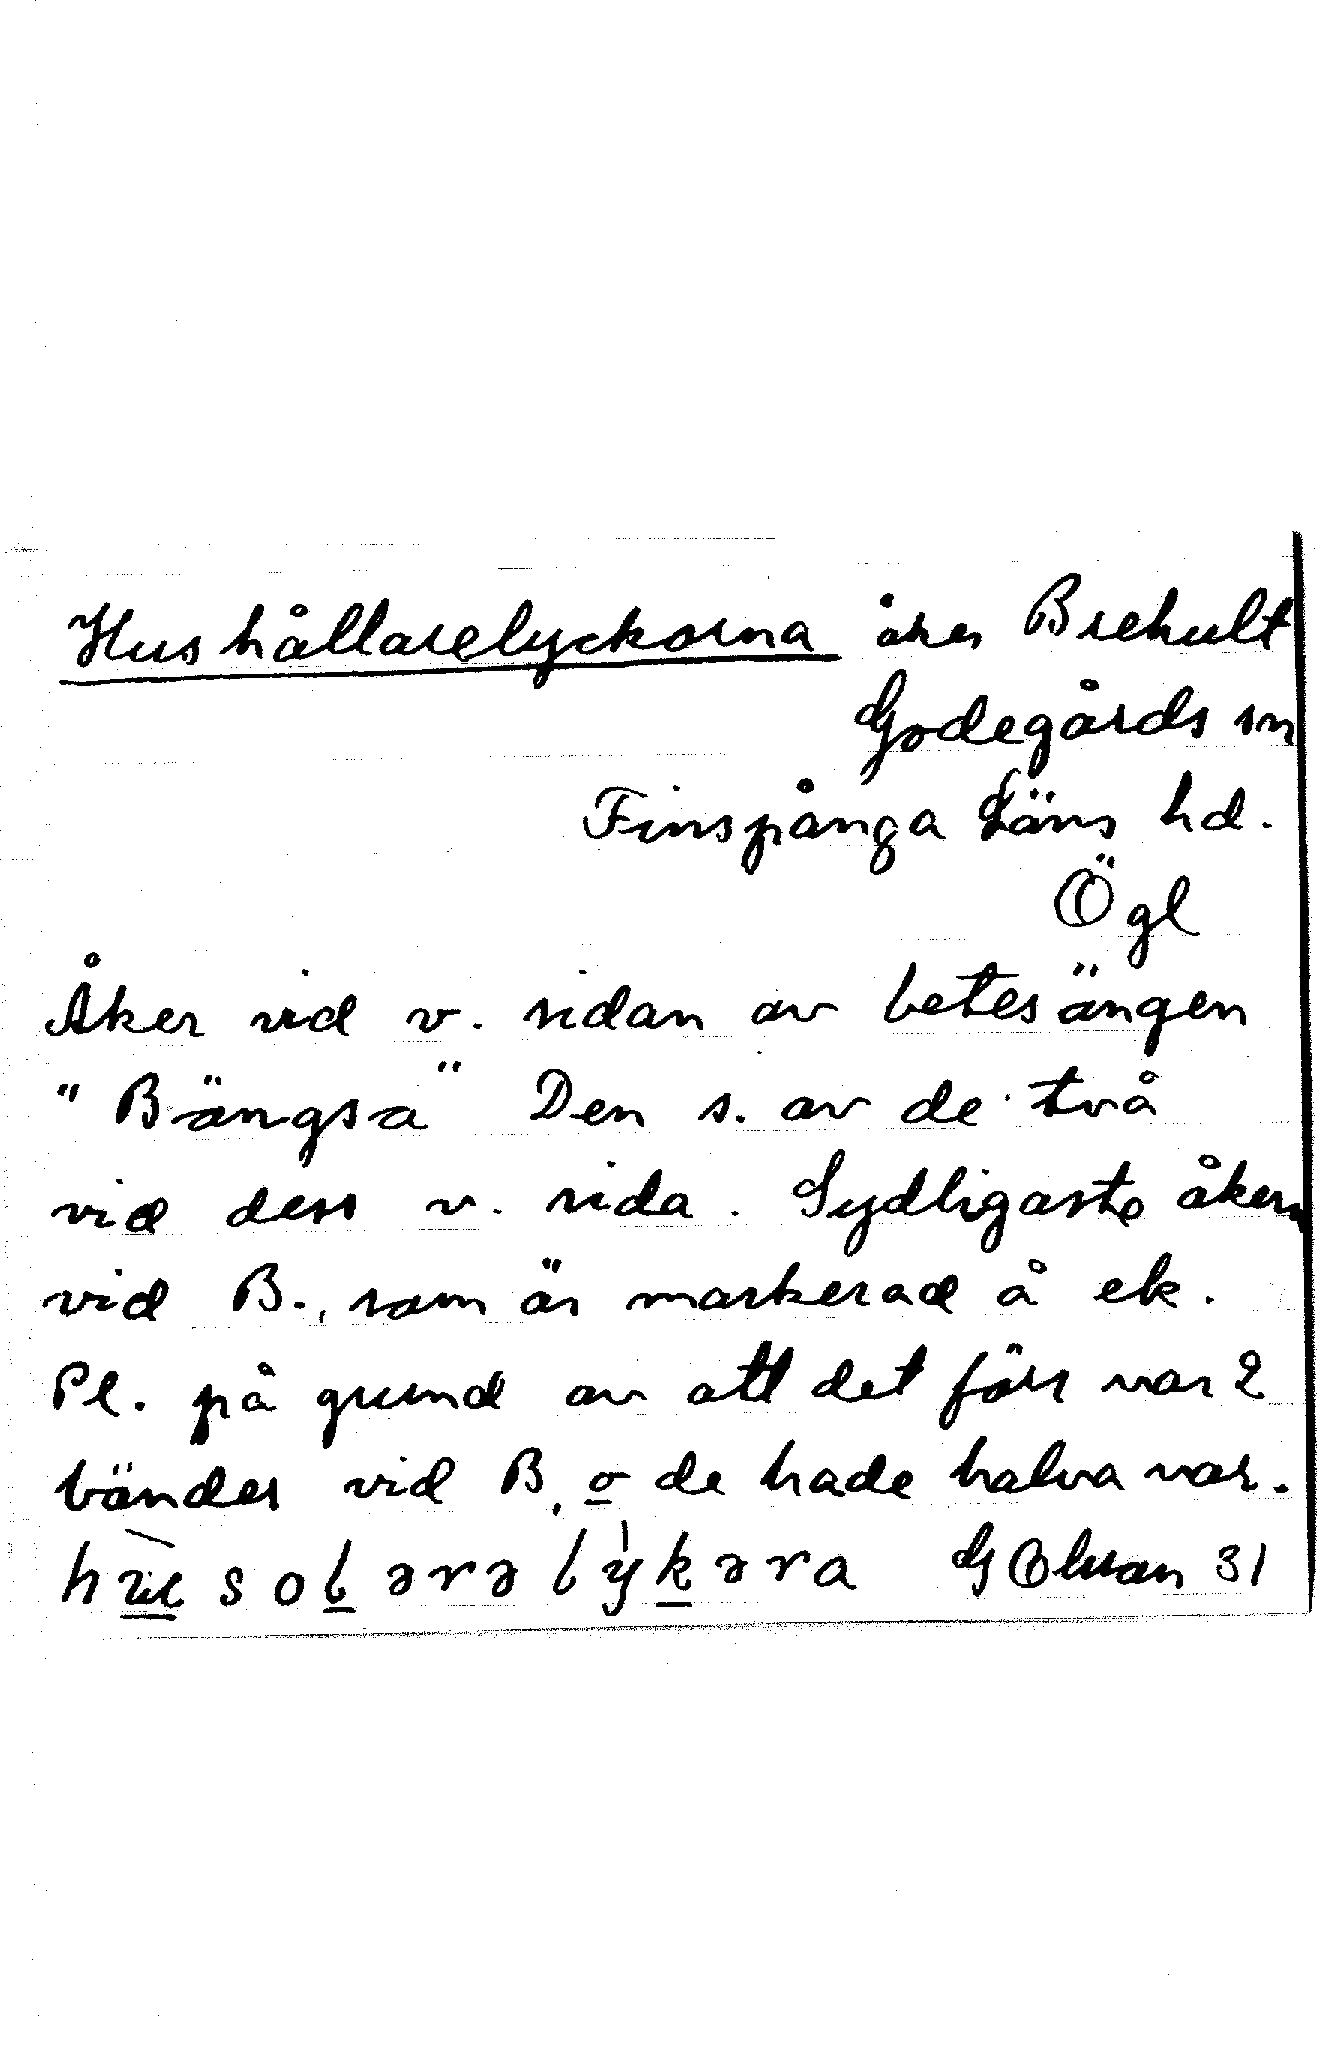 Hushållarelyckorna åker Brehult
Godegårds sn
Finspånga Läns hd.
Ögl
Åker vid v. sidan av betesängen
"Bängsa" Den s. av de två
vid dess v. sida. Sydligaste åkern
vid B., som är markerad å ek.
Pl. på grund av att det förr var 2
bönder vid B, o de hade halva var.
G Olsson 31